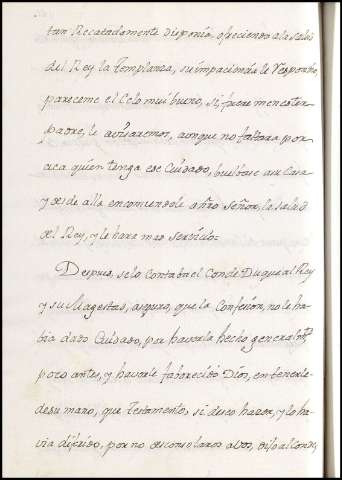 tan Recatadamente disponia, ofreciendo a la salud
del Rey la templanza, su impaciencia le respondio,
pareceme el Celo mui bueno, si fuere menester
Padre, le avisaremos, aunque no faltara por
aca quien tenga ese Cuidado, buelbase a su Casa
y desde alla encomiendele a nro Señor, la salud
del Rey, y le hara mas servicio.
Despues, selo Contaba el Conde Duque al Rey
y su Magestad, aseguro, que la Confesion, no le ha
bia dado Cuidado, por haverla hecho general mui
poco antes, y haverle faborecido Dios, en tenerle
de su mano, que testamento, si deseo hazer, y lo ha
via diferido, por no desconsolaros a vos, dijo al Conde,